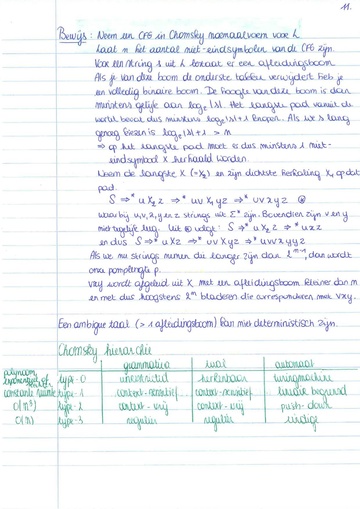 11.
Bewijs: Neem een CFG in Chomsky normaalvorm voor L
Laat n het aantal niet-eindsymbolen van de CFG zijn.
Voor een string s uit L bestaat er een afleidingsboom.
Als je van deze boom de onderste takken verwijdert heb je
een volledig binaire boom. De hoogte van deze boom is dan
minstens gelijk aan log₂|s|. Het langste pad vanuit de
wortel bevat dus minstens log₂|s|+1 knopen. Als we s lang
genoeg kiezen is log₂|s|+1 > n
⇒ op het langste pad moet er dus minstens 1 niet-
eindsymbool X herhaald worden.
Neem de langste X (=X₁) en zijn dichtste herhaling X₂ op dat
pad.
S ⇒* u X₁ z ⇒* uv X₂ y z ⇒* uv x y z
waarbij u,v,x,y en z strings uit Σ* zijn. Bovendien zijn v en y
niet tegelijk leeg. Uit volgt: S ⇒* u X₂ z ⇒* u x z
en dus S ⇒* u X z ⇒* uv X y z ⇒* uvvxyyz
Als we nu strings nemen die langer zijn dan dan wordt
onze pomplengte p.
vxy wordt afgeleid uit X met een afleidingsboom kleiner dan n
en met dus hoogstens 2ⁿ bladeren die corresponderen met vxy.
Een ambigue taal (> 1 afleidingsboom) kan niet deterministisch zijn.
Chomsky hierarchie
grammatica taal automaat
type-0 unrestricted herkenbaar turingmachine
constante ruimte type-1 context-sensitief context-sensitief lineair begrensd
O(n³) type-2 context-vrij context-vrij push-down
O(n) type-3 regulier regulier eindige